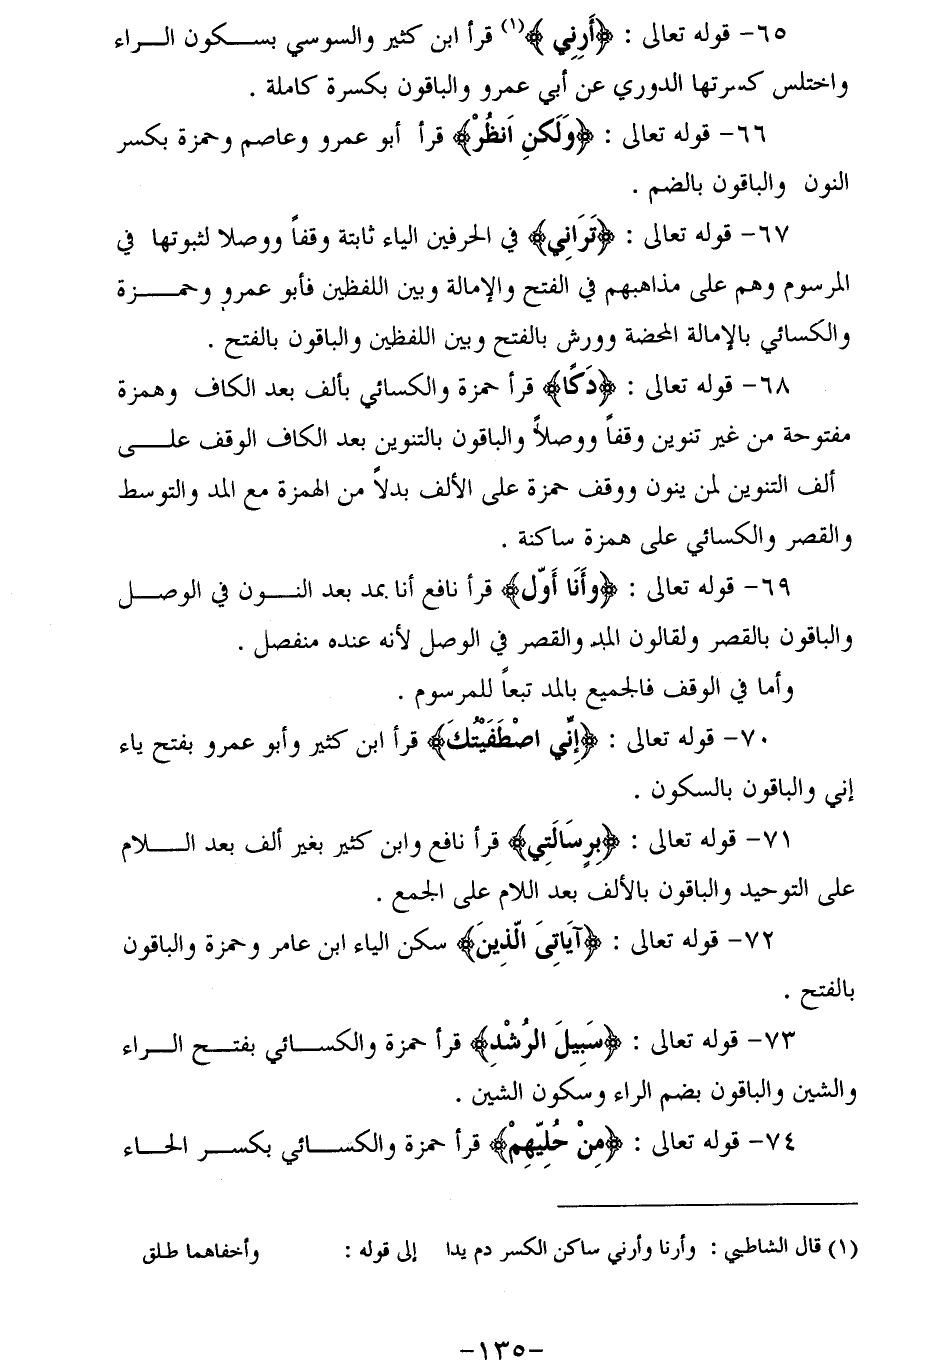 ٦٥- قوله تعالى : ﴿أَرِنِي﴾(١) قرأ ابن كثير والسوسي بسكون الراء
واختلس كسرتها الدوري عن أبي عمرو والباقون بكسرة كاملة .
٦٦- قوله تعالى : ﴿وَلَكنِ اَنظُرْ﴾ قرأ أبو عمرو وعاصم وحمزة بكسر
النون والباقون بالضم .
٦٧- قوله تعالى : ﴿تَرَانِي﴾ في الحرفين الياء ثابتة وقفاً ووصلا لثبوتها في
المرسوم وهم على مذاهبهم في الفتح والإمالة وبين اللفظين فأبو عمرو وحمزة
والكسائي بالإمالة المحضة وورش بالفتح وبين اللفظين والباقون بالفتح .
٦٨- قوله تعالى : ﴿دَكًا﴾ قرأ حمزة والكسائي بألف بعد الكاف وهمزة
مفتوحة من غير تنوين وقفاً ووصلاً والباقون بالتنوين بعد الكاف الوقف على
ألف التنوين لمن ينون ووقف حمزة على الألف بدلاً من الهمزة مع المد والتوسط
والقصر والكسائي على همزة ساكنة .
٦٩- قوله تعالى : ﴿وأَنَا أَوّل﴾ قرأ نافع أنا بمد بعد النون في الوصل
والباقون بالقصر ولقالون المد والقصر في الوصل لأنه عنده منفصل .
وأما في الوقف فالجميع بالمد تبعاً للمرسوم .
٧٠- قوله تعالى : ﴿إِنِّي اصْطَفَيْتُكَ﴾ قرأ ابن كثير وأبو عمرو بفتح ياء
إني والباقون بالسكون .
٧١- قوله تعالى : ﴿بِرِسَالَتِي﴾ قرأ نافع وابن كثير بغير ألف بعد اللام
على التوحيد والباقون بالألف بعد اللام على الجمع .
٧٢- قوله تعالى : ﴿آيَاتِىَ الّذِينَ﴾ سكن الياء ابن عامر وحمزة والباقون
بالفتح .
٧٣- قوله تعالى : ﴿سَبِيلَ الرُشْدِ﴾ قرأ حمزة والكسائي بفتح الراء
والشين والباقون بضم الراء وسكون الشين .
٧٤- قوله تعالى : ﴿مِنْ حُلِيّهِمْ﴾ قرأ حمزة والكسائي بكسر الحاء
(١) قال الشاطبي : وأرنا وأرني ساكن الكسر دم يدا إلى قوله : وأخفاهما طلق
-١٣٥-